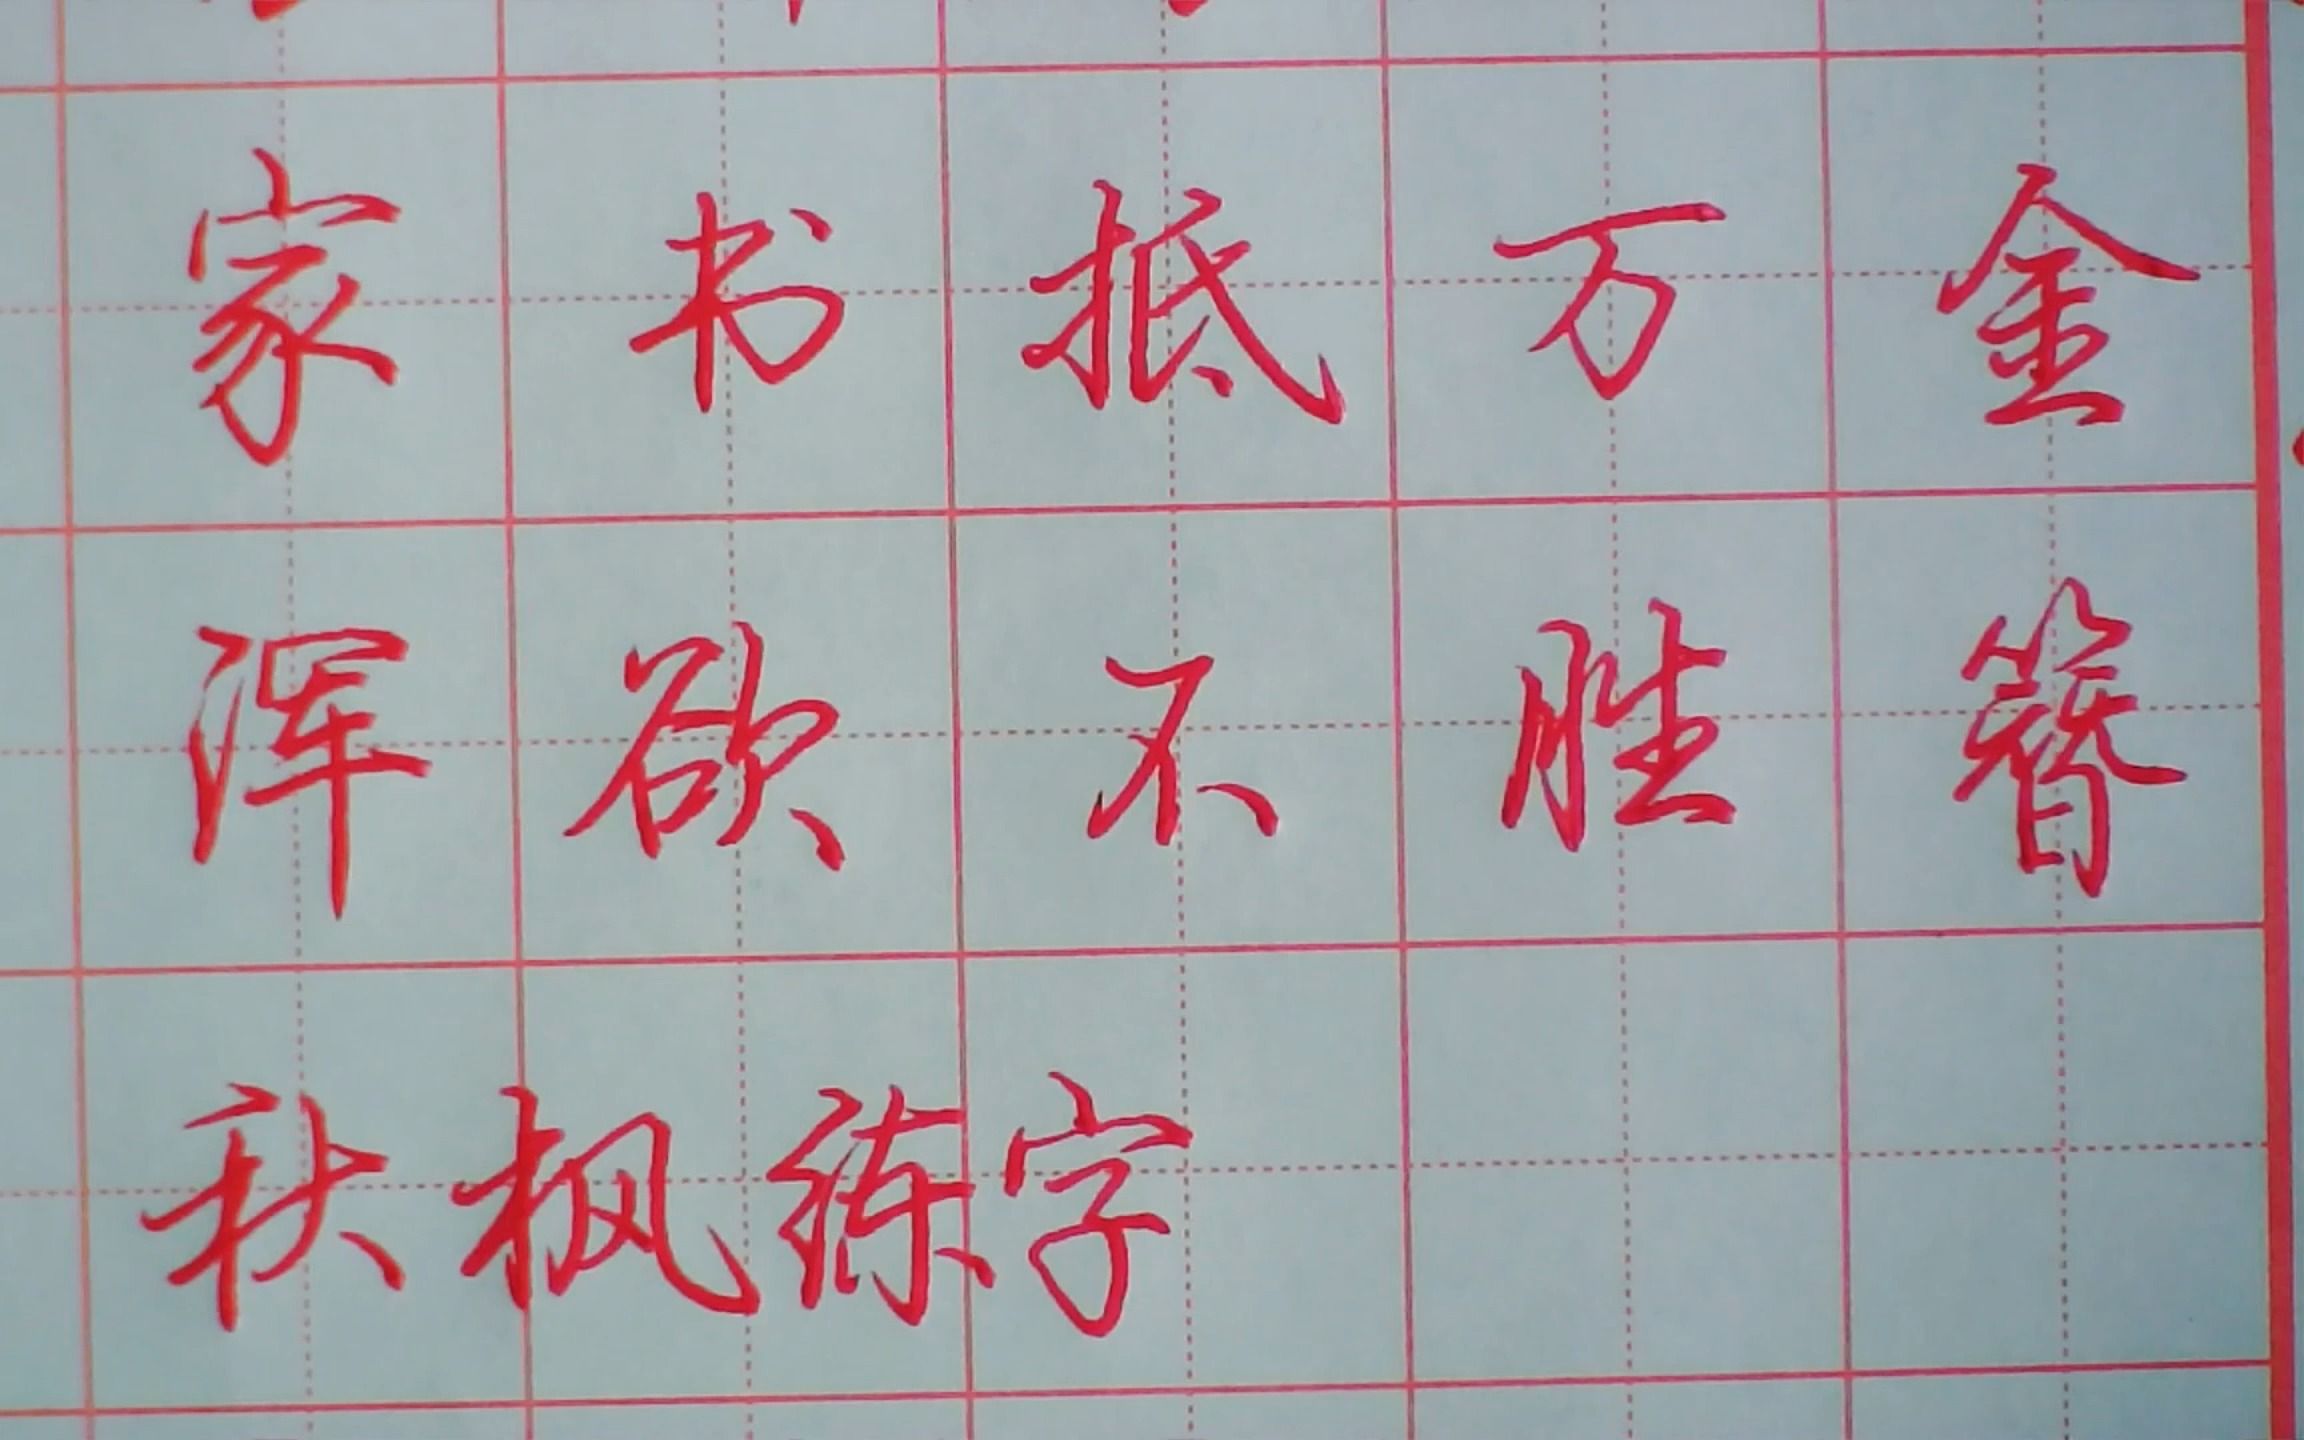 家书抵万金
浑欲不胜簪
秋枫练字